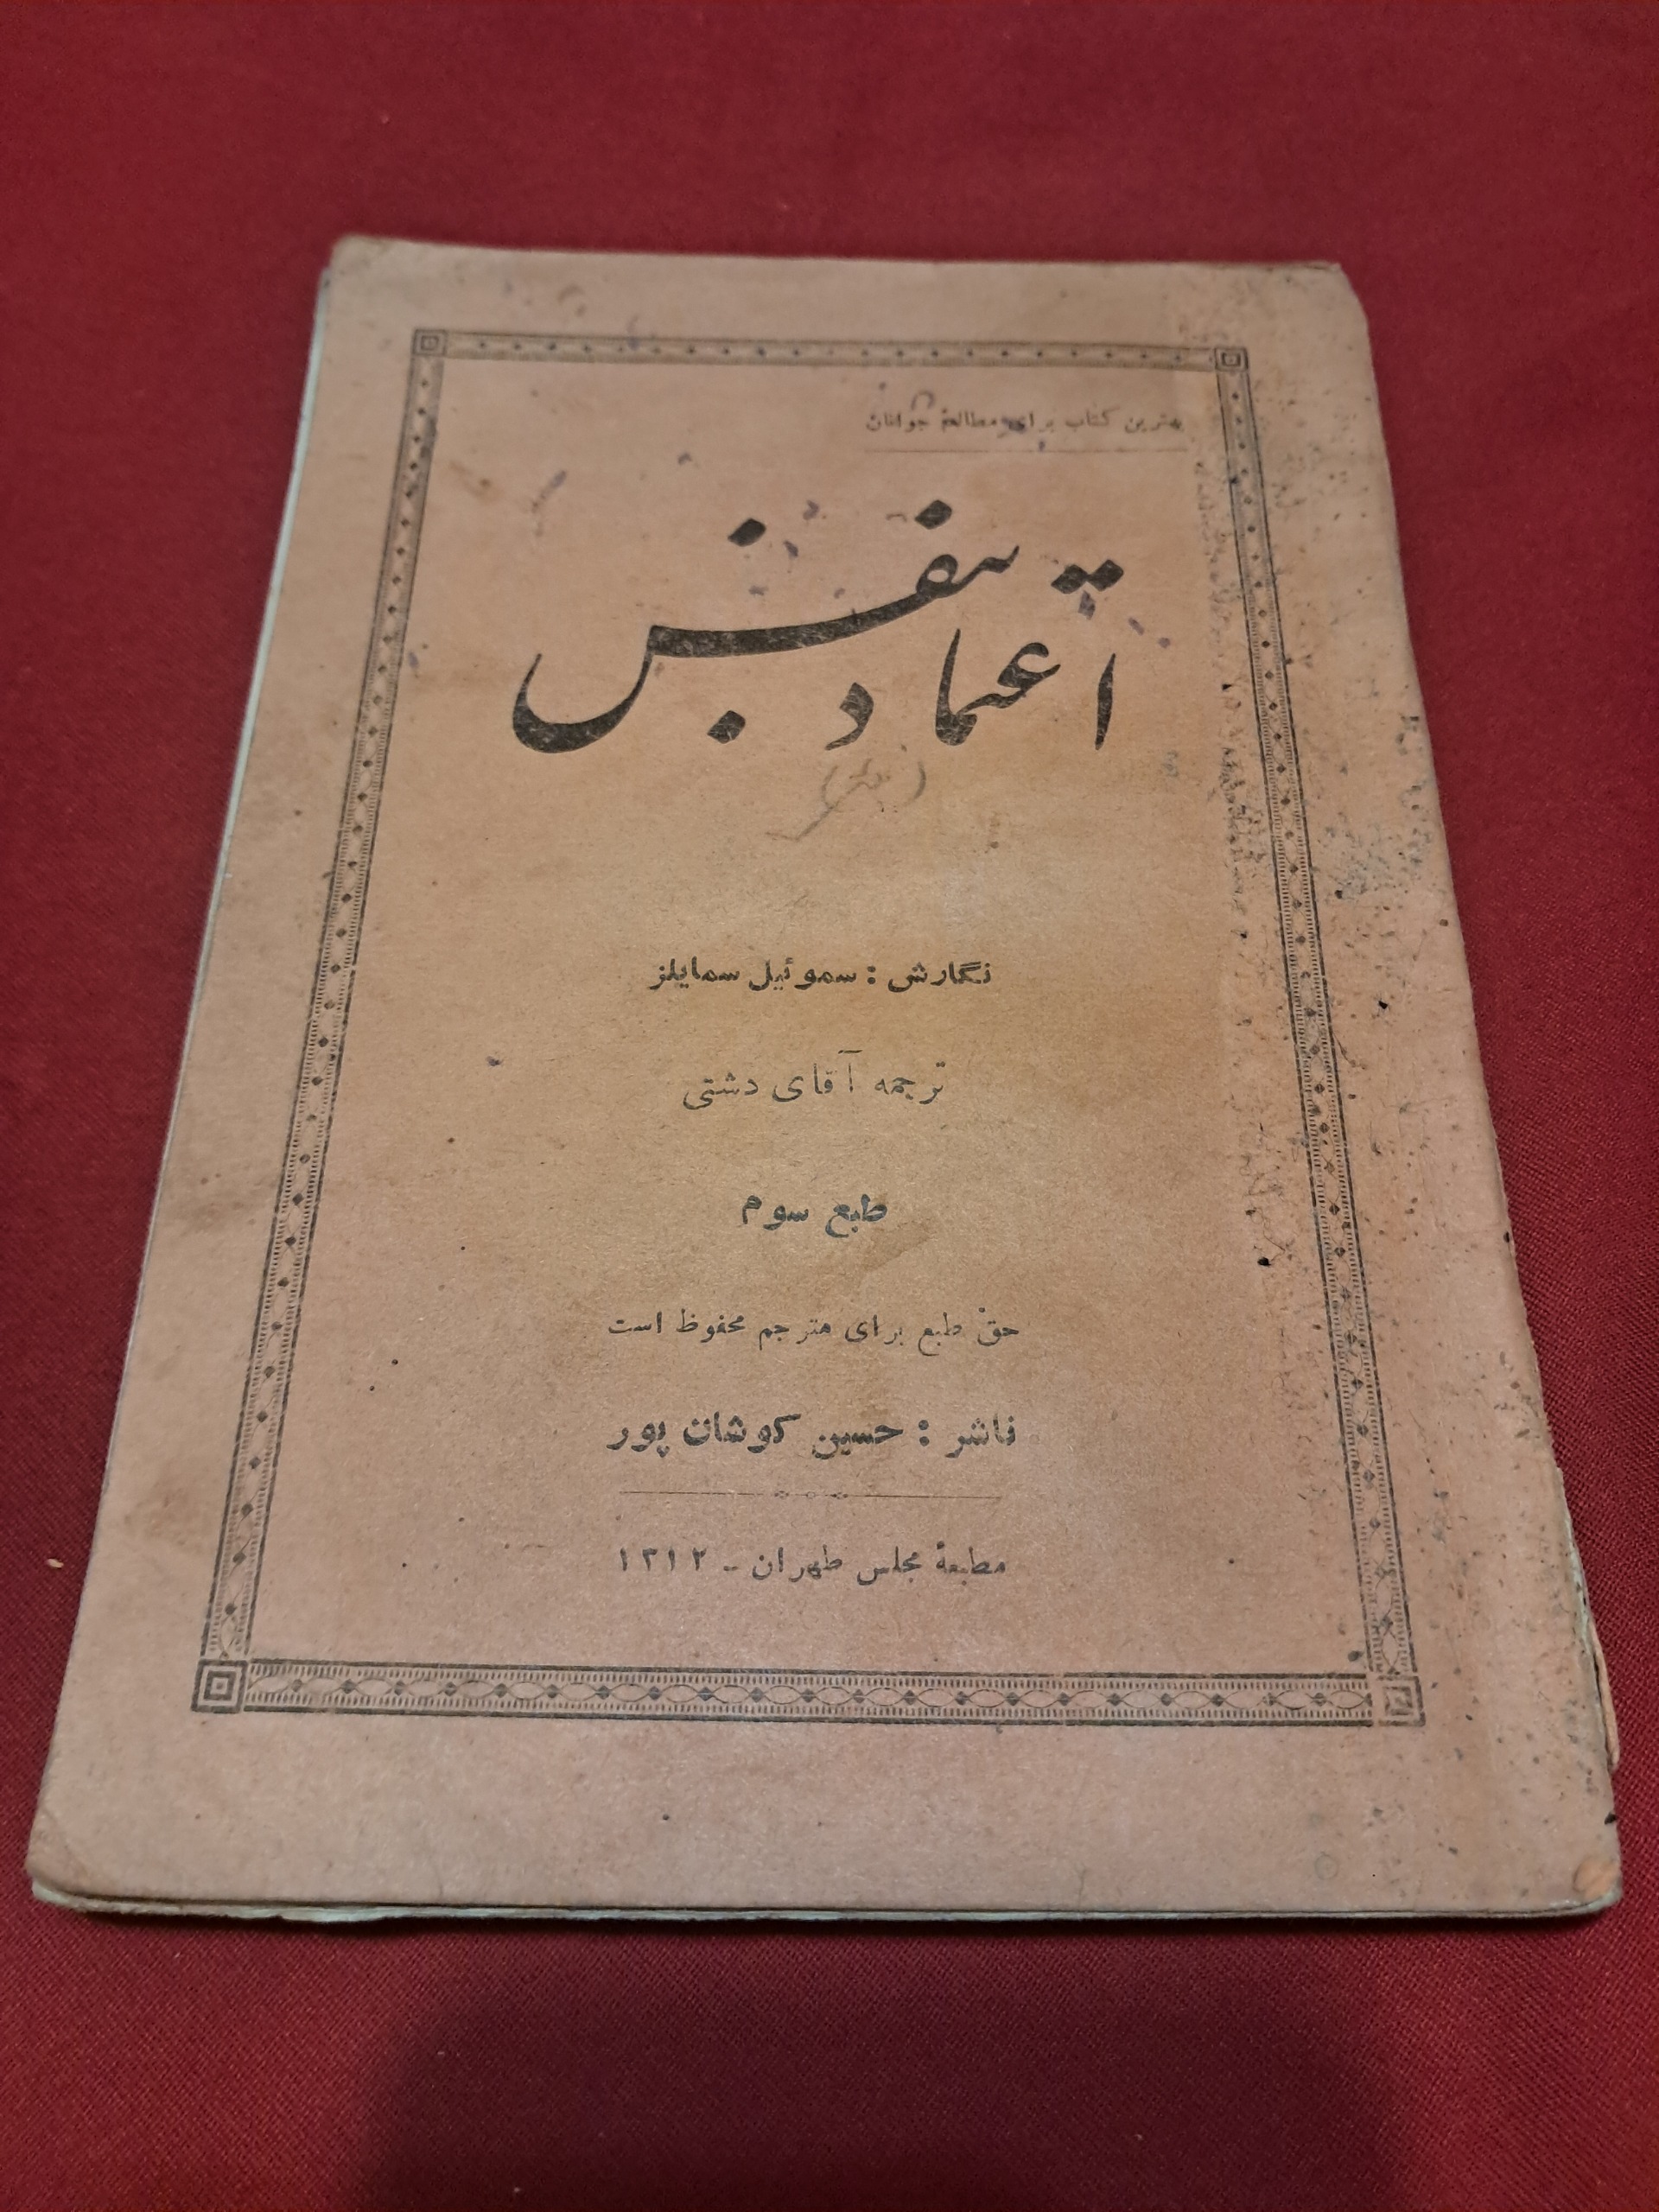 بهترین کتاب برای مطالعهٔ جوانان
اعتماد بنفس
نگارش : سموئیل سمایلز
ترجمه آقای دشتی
طبع سوم
حق طبع برای مترجم محفوظ است
ناشر : حسین کوشان پور
مطبعهٔ مجلس طهران - ۱۳۱۲